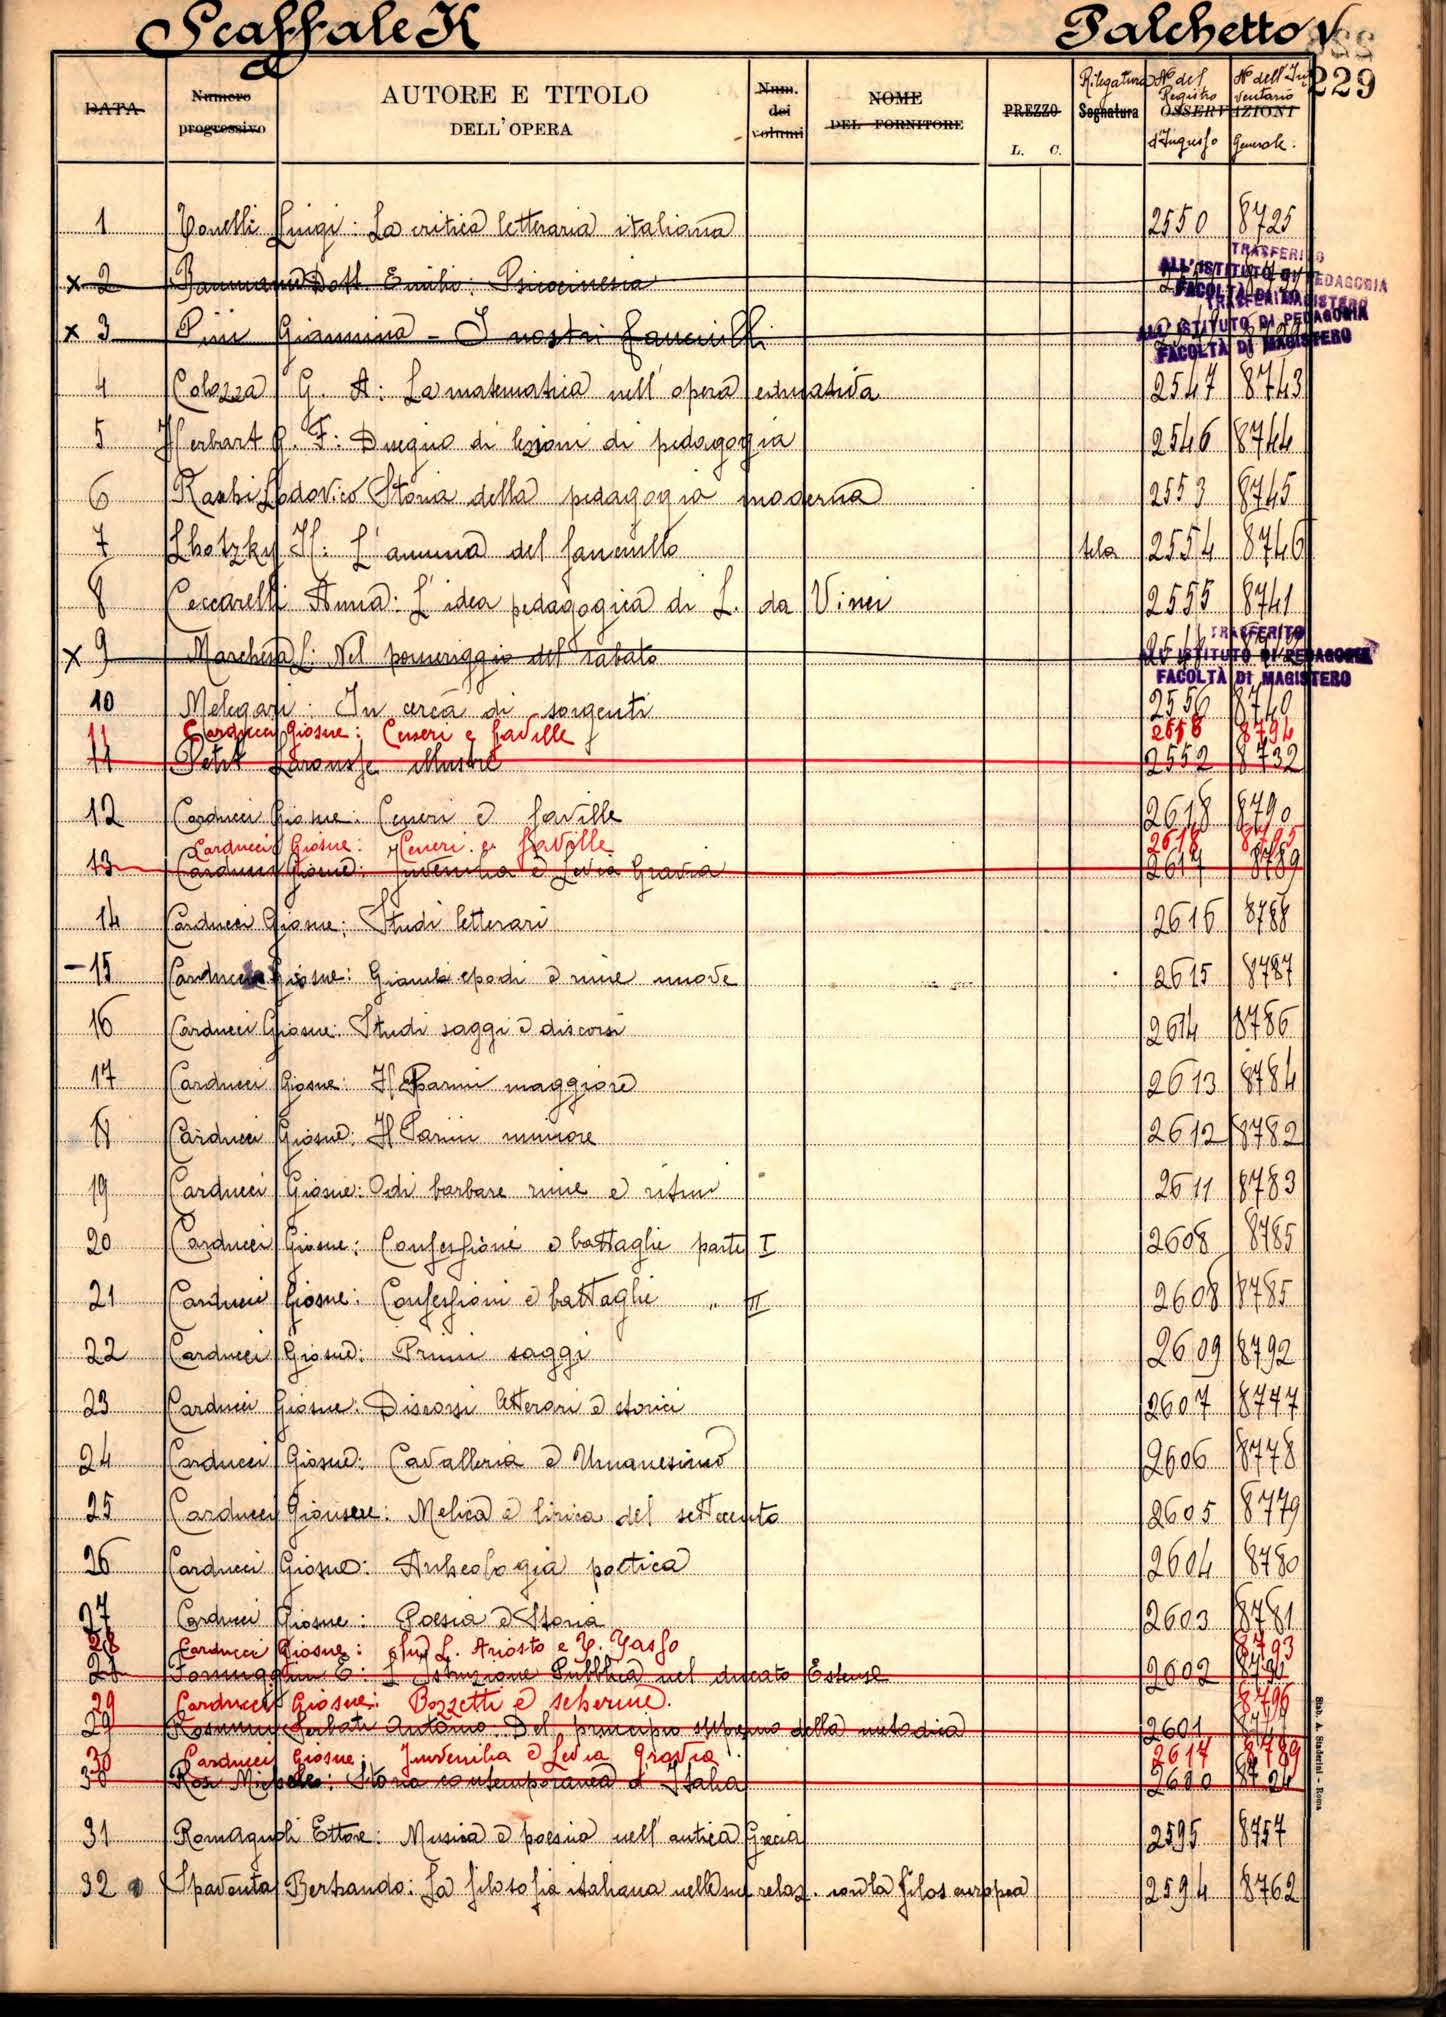 Scaffale K Palchetto V
229
DATA Numero progressivo AUTORE E TITOLO DELL'OPERA Num. dei volumi NOME DEL FORNITORE PREZZO L. C. Rilegatura Segnatura N° del Registro d'Ingresso OSSERVAZIONI N° dell'Inventario Generale.
1 Tonelli Luigi: La critica letteraria italiana 2550 8725
x 2 Dott. Emilio: Psicocinesia
TRASFERITO ALL'ISTITUTO DI PEDAGOGIA FACOLTÀ DI MAGISTERO
x 3 Pini Giannina - I nostri fanciulli
TRASFERITO ALL'ISTITUTO DI PEDAGOGIA FACOLTÀ DI MAGISTERO
4 Colozza G. A: La matematica nell'opera educativa 2547 8743
5 Herbart G. F: Disegno di lezioni di pedagogia 2546 8744
6 Lodovico Storia della pedagogia moderna 2553 8745
7 Lhotzky H: L'anima del fanciullo tela 2554 8746
8 Ceccarelli Anna: L'idea pedagogica di L. da Vinci 2555 8741
x 9 Marchesa L: Nel pomeriggio del sabato
TRASFERITO ALL'ISTITUTO DI PEDAGOGIA FACOLTÀ DI MAGISTERO
10 Melegari: In cerca di sorgenti 2556 8740
11 Carducci Giosue: Ceneri e faville 2618 8794
11 Petit Larousse illustré 2552 8732
12 Carducci Giosue: Ceneri e faville 2618 8790
Carducci Giosue: Ceneri e faville 2618
13 Carducci Giosue: Juvenilia e Levia Gravia 2617 8789
14 Carducci Giosue: Studi letterari 2616 8788
-15 Carducci Giosue: Giambi epodi e rime nuove 2615 8787
16 Carducci Giosue: Studi saggi e discorsi 2614 8786
17 Carducci Giosue: Il Parini maggiore 2613 8784
18 Carducci Giosue: Il Parini minore 2612 8782
19 Carducci Giosue: Odi barbare rime e ritmi 2611 8783
20 Carducci Giosue: Confessioni e battaglie parte I 2608 8785
21 Carducci Giosue: Confessioni e battaglie " II 2608 8785
22 Carducci Giosue: Primi saggi 2609 8792
23 Carducci Giosue: Discorsi letterari e storici 2607 8777
24 Carducci Giosue: Cavalleria e Umanesimo 2606 8778
25 Carducci Giousue: Melica e lirica del settecento 2605 8779
26 Carducci Giosue: Archeologia poetica 2604 8780
27 Carducci Giosue: Poesia e Storia 2603 8781
28 Carducci Giosue: Su L. Ariosto e T. Tasso 8793
E: L'Istruzione Pubblica nel ducato Estense 2602
29 Carducci Giosue: Bozzetti e scherme. 8796
29 Rosmini Serbati Antonio: Del principio supremo della metodica 2601
30 Carducci Giosue: Juvenilia e Levia Gravia 2617 8789
30 Rosi Michele: Storia contemporanea d'Italia
31 Romagnoli Ettore: Musica e poesia nell'antica Grecia 2595 8757
32 Spaventa Bertrando: La filosofia italiana nelle sue relaz. con la filos europea 2594 8762
Stab. A. Staderini - Roma